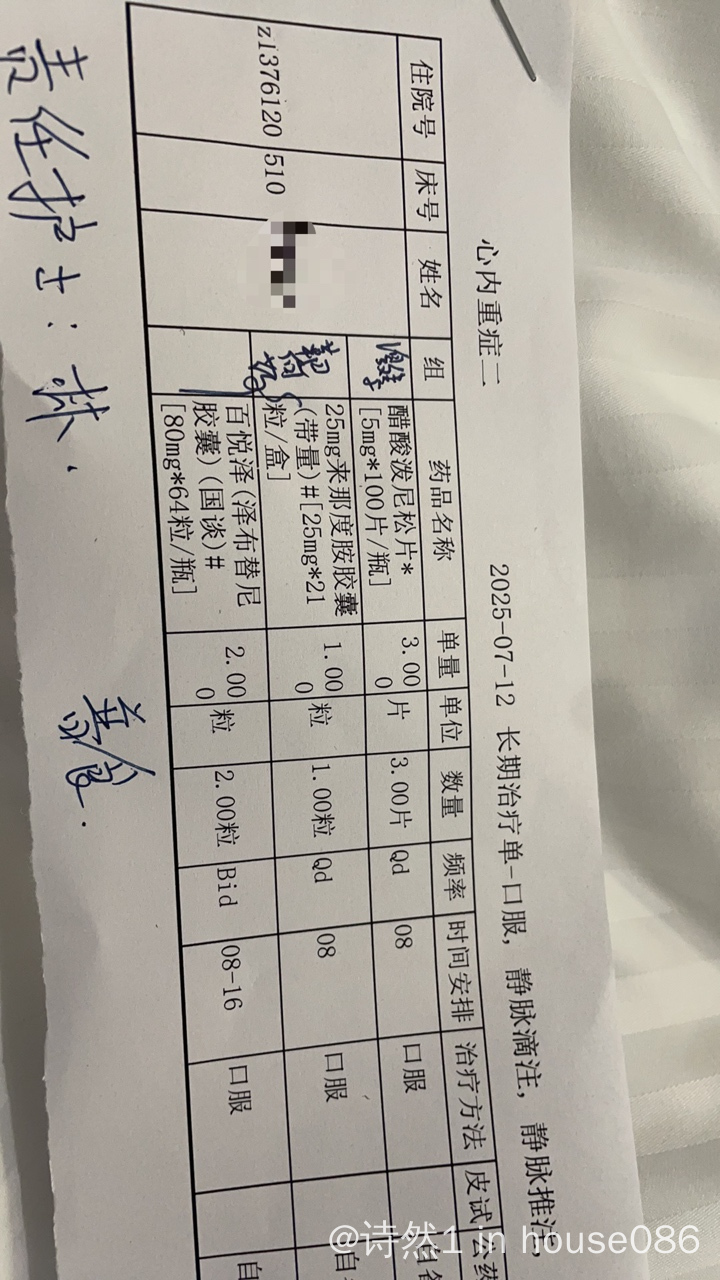 心内重症二
2025-07-12 长期治疗单-口服, 静脉滴注, 静脉推注,
住院号 床号 姓名 组 药品名称 单量 单位 数量 频率 时间安排 治疗方法 皮试
zi376120 510
激素
醋酸泼尼松片*
[5mg*100片/瓶]
3.00
0
片 3.00片 Qd 08 口服
靶向
25mg来那度胺胶囊
(带量)#[25mg*21
粒/盒]
1.00
0
粒 1.00粒 Qd 08 口服 自
百悦泽(泽布替尼
胶囊)(国谈)#
[80mg*64粒/瓶]
2.00
0
粒 2.00粒 Bid 08-16 口服 自
责任护士: 林.
禁食.
@诗然1 in house086